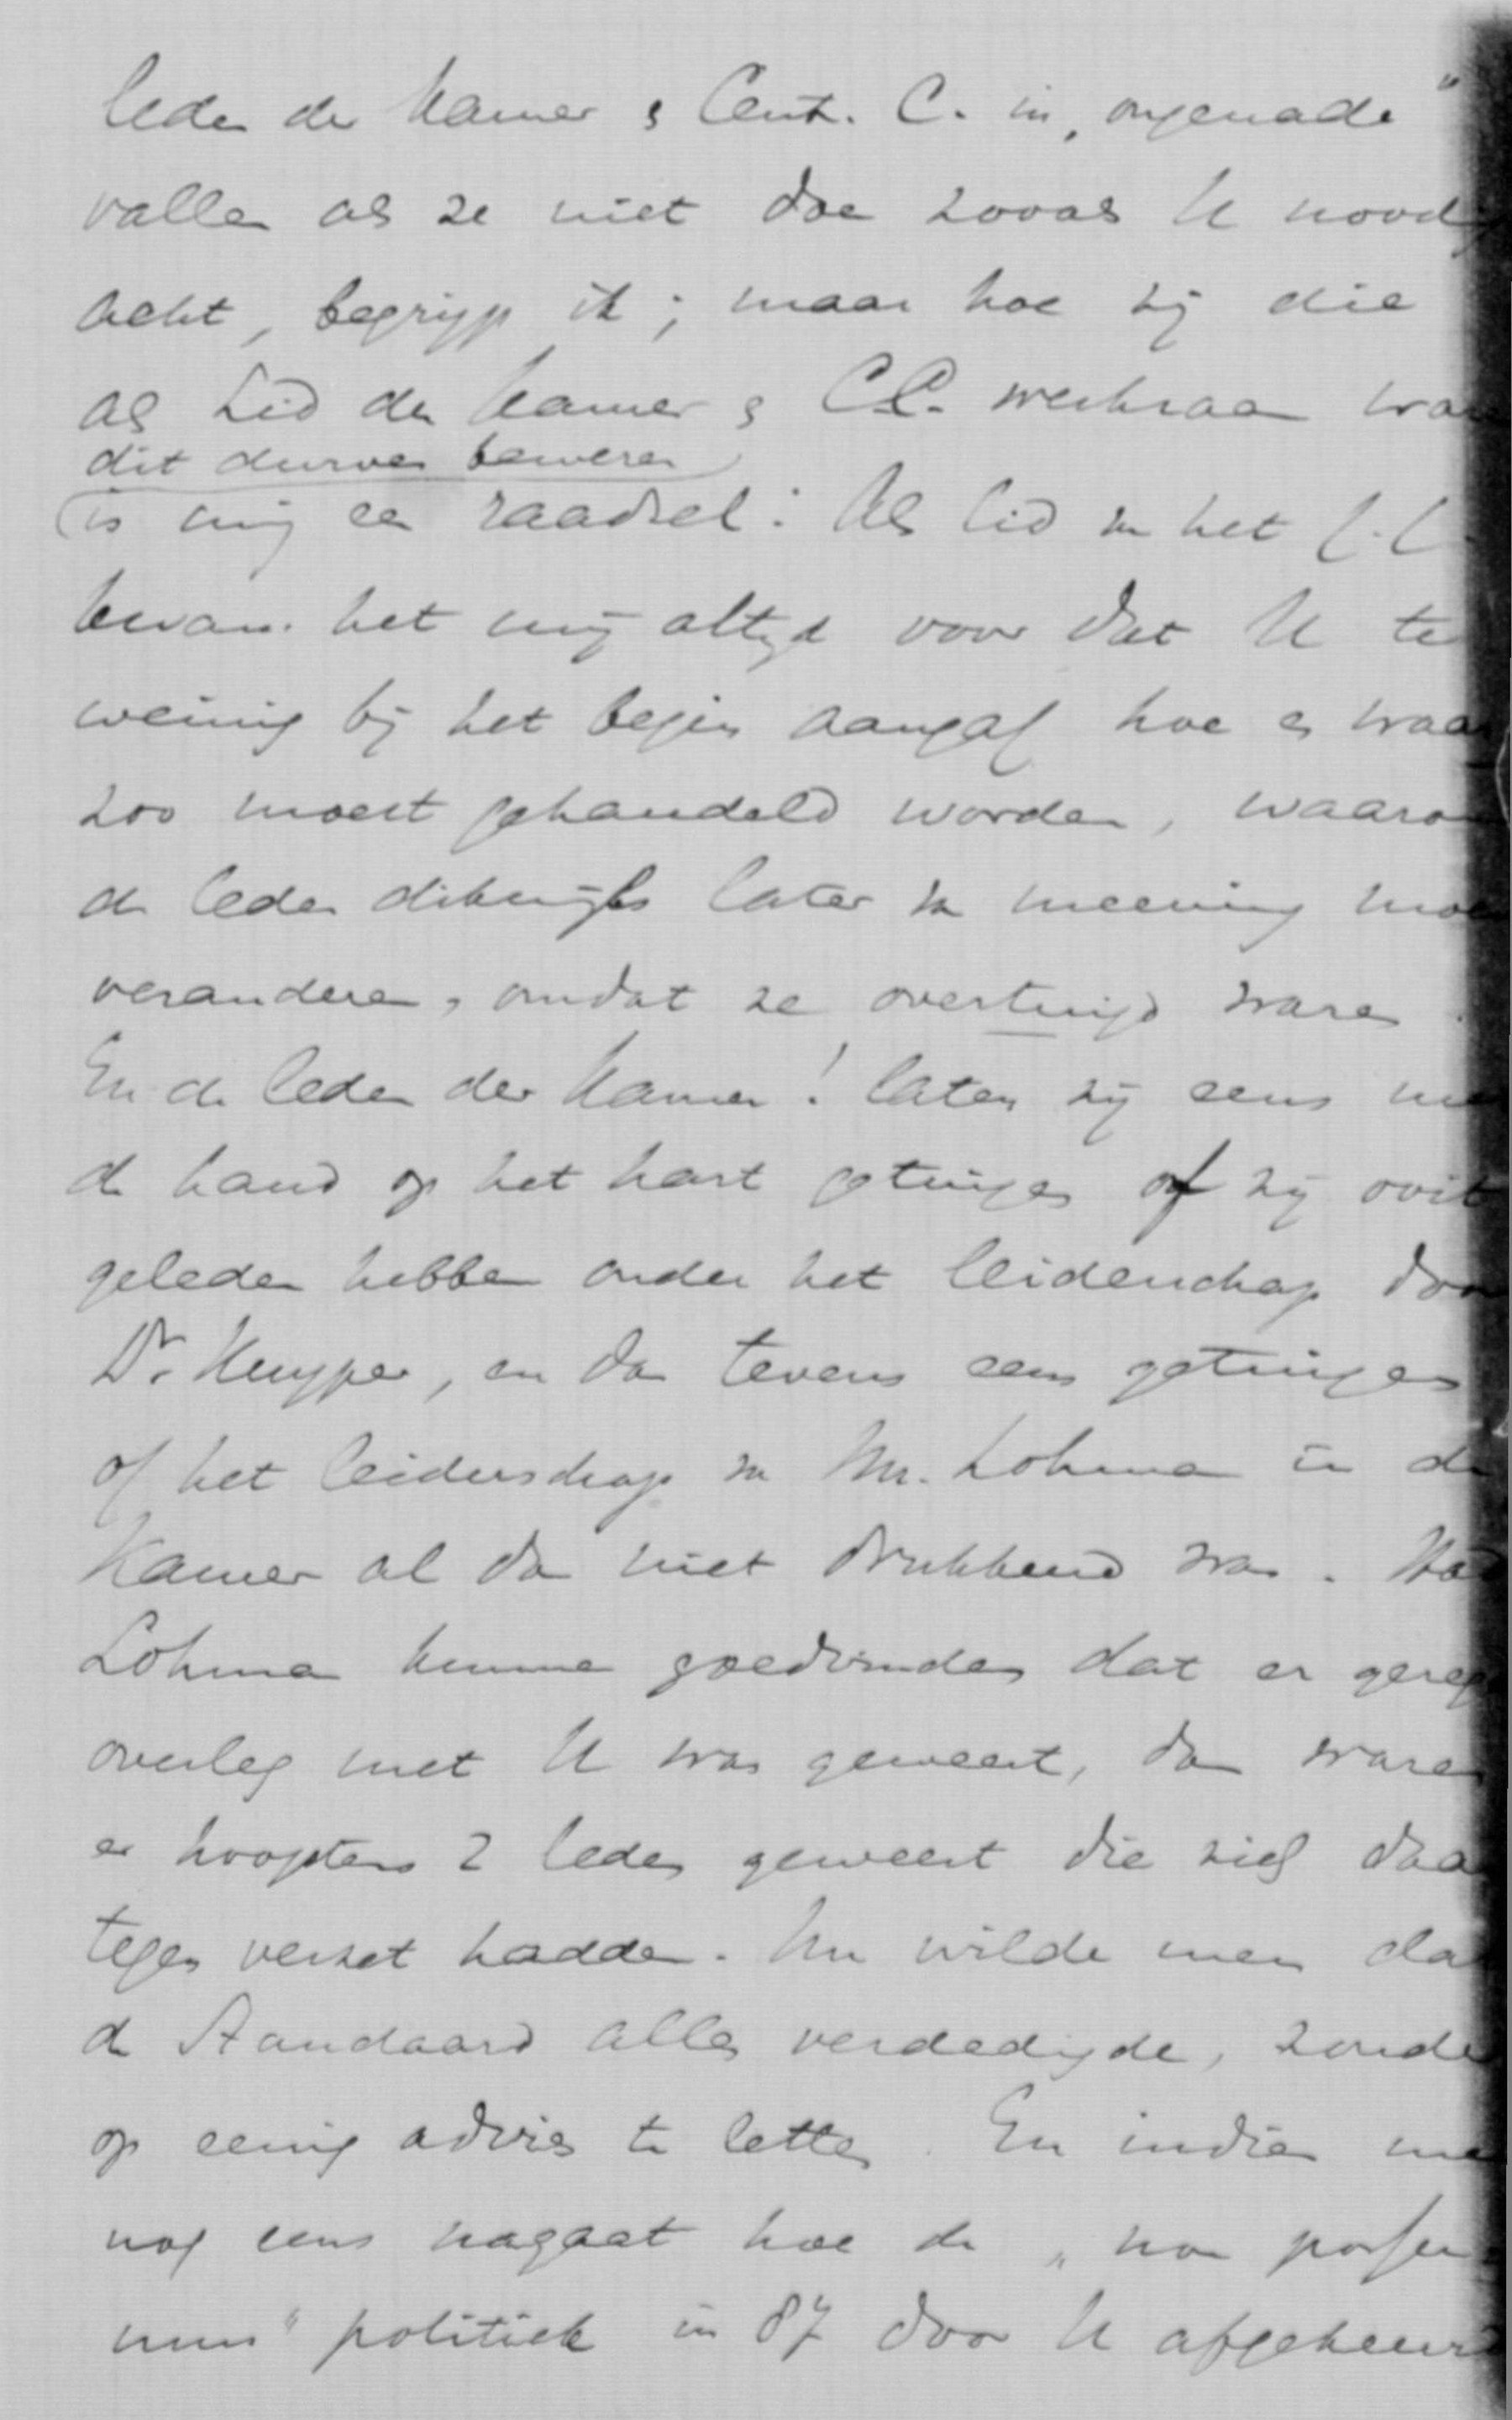 leden der Kamer & Cent. C. in „ongenade"
vallen als ze niet doen zooals U noodig
acht, begrijp ik; maar hoe zij die
als Lid der Kamer & CC. werkzaam
dit durven beweren
is mij een raadsel: Als lid van het C.C.
kwam het mij altijd voor dat U te
weinig bij het begin aangaf hoe en waar
zoo moest gehandeld worden, waarom
de leden dikwijls later van meening
veranderen, omdat ze overtuigd waren.
En de leden der Kamer! laten zij eens
de hand op het hart getuigen of zij ooit
geleden hebben onder het leidenschap door
Dr. Kuyper, en dan tevens eens getuigen
of het leiderschap van Mr. Lohman in de
Kamer al dan niet drukkend was. Had
Lohman kunnen goedvinden dat er
overleg met U was geweest, dan waren
er hoogstens 2 leden geweest die zich daar
tegen verzet hadden. Nu wilde men dat
de Standaard alles verdedigde, zonder
op eenig advies te letten. En indien men
nog eens nagaat hoe de „non possu
mus" politiek in 87 door U afgekeurd